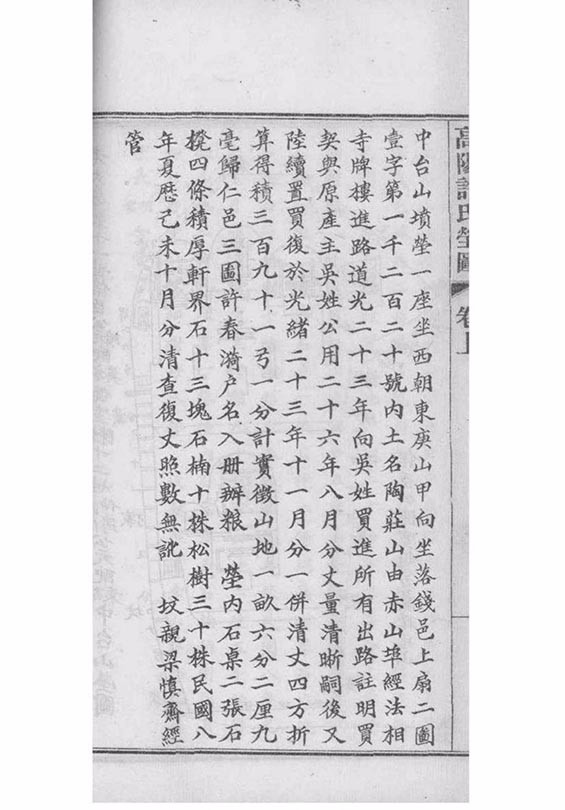 高陽許氏塋圖
卷上
中台山墳塋一座坐西朝東庚山甲向坐落錢邑上扇二圖
壹字第一千二百二十號內土名陶莊山由赤山埠經法相
寺牌樓進路道光二十三年向吳姓買進所有出路註明買
契與原產主吳姓公用二十六年八月分丈量清晰嗣後又
陸續置買復於光緒二十三年十一月分一併清丈四方折
算得積三百九十一弓一分計實徵山地一畝六分二厘九
毫歸仁邑三圖許春漪户名入册辦粮　塋內石桌二張石
櫈四條積厚軒界石十三塊石楠十株松樹三十株民國八
年夏厯己未十月分清查復丈照數無訛　坟親梁慎齋經
管